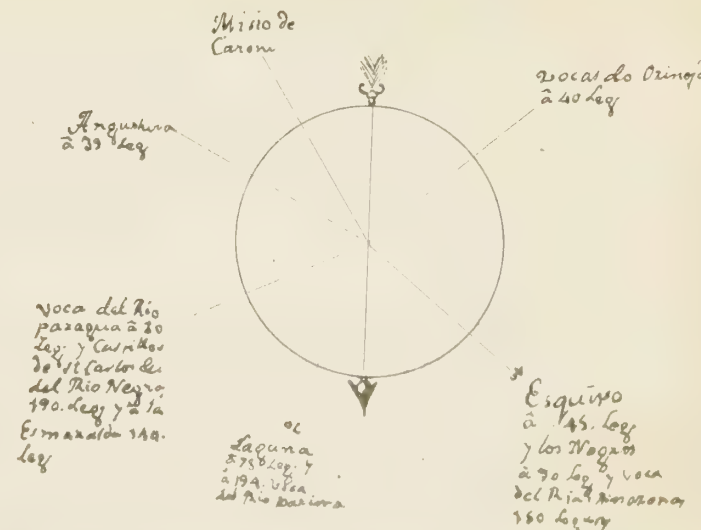 Misio de
Caroni
vocas do Orinojo
â 40 Leg
Angustura
â 39 Leg
voca del Rio
paragua â 30
Leg. y Castillos
de sn Carlos
del Rio Negro
190. Leg y â la
Esmaralda 140.
Leg
Laguna
Leg. y
â 194. voca
del Rio
Esquivo
â 45. Leg
y los Negros
â 70 Leg y voca
del Rio Amazonas
350 Leg